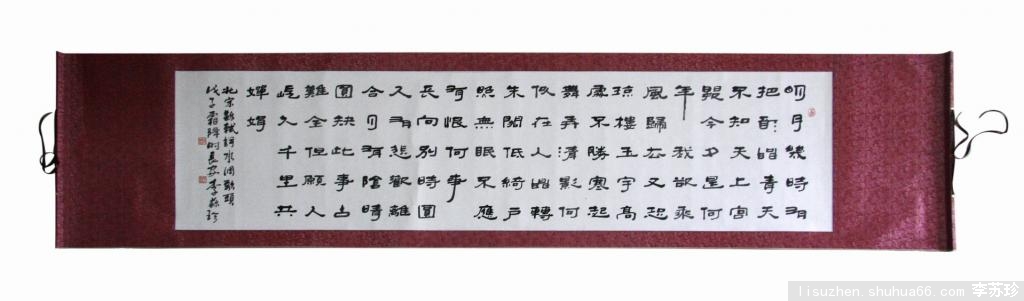 明月幾時有
把酒問青天
不知天上宮
闕今夕是何
年我欲乘
風歸去又恐
瓊樓玉宇高
處不勝寒起
舞弄清影何
似在人間轉
朱閣低綺戶
照無眠不應
有恨何事
長向別時圓
人有悲歡離
合月有陰晴
圓缺此事古
難全但願人
長久千里共
嬋娟
北宋蘇軾詞水調歌頭
戊子霜降時長安李蘇珍
lisuzhen.shuhua66.com 李苏珍